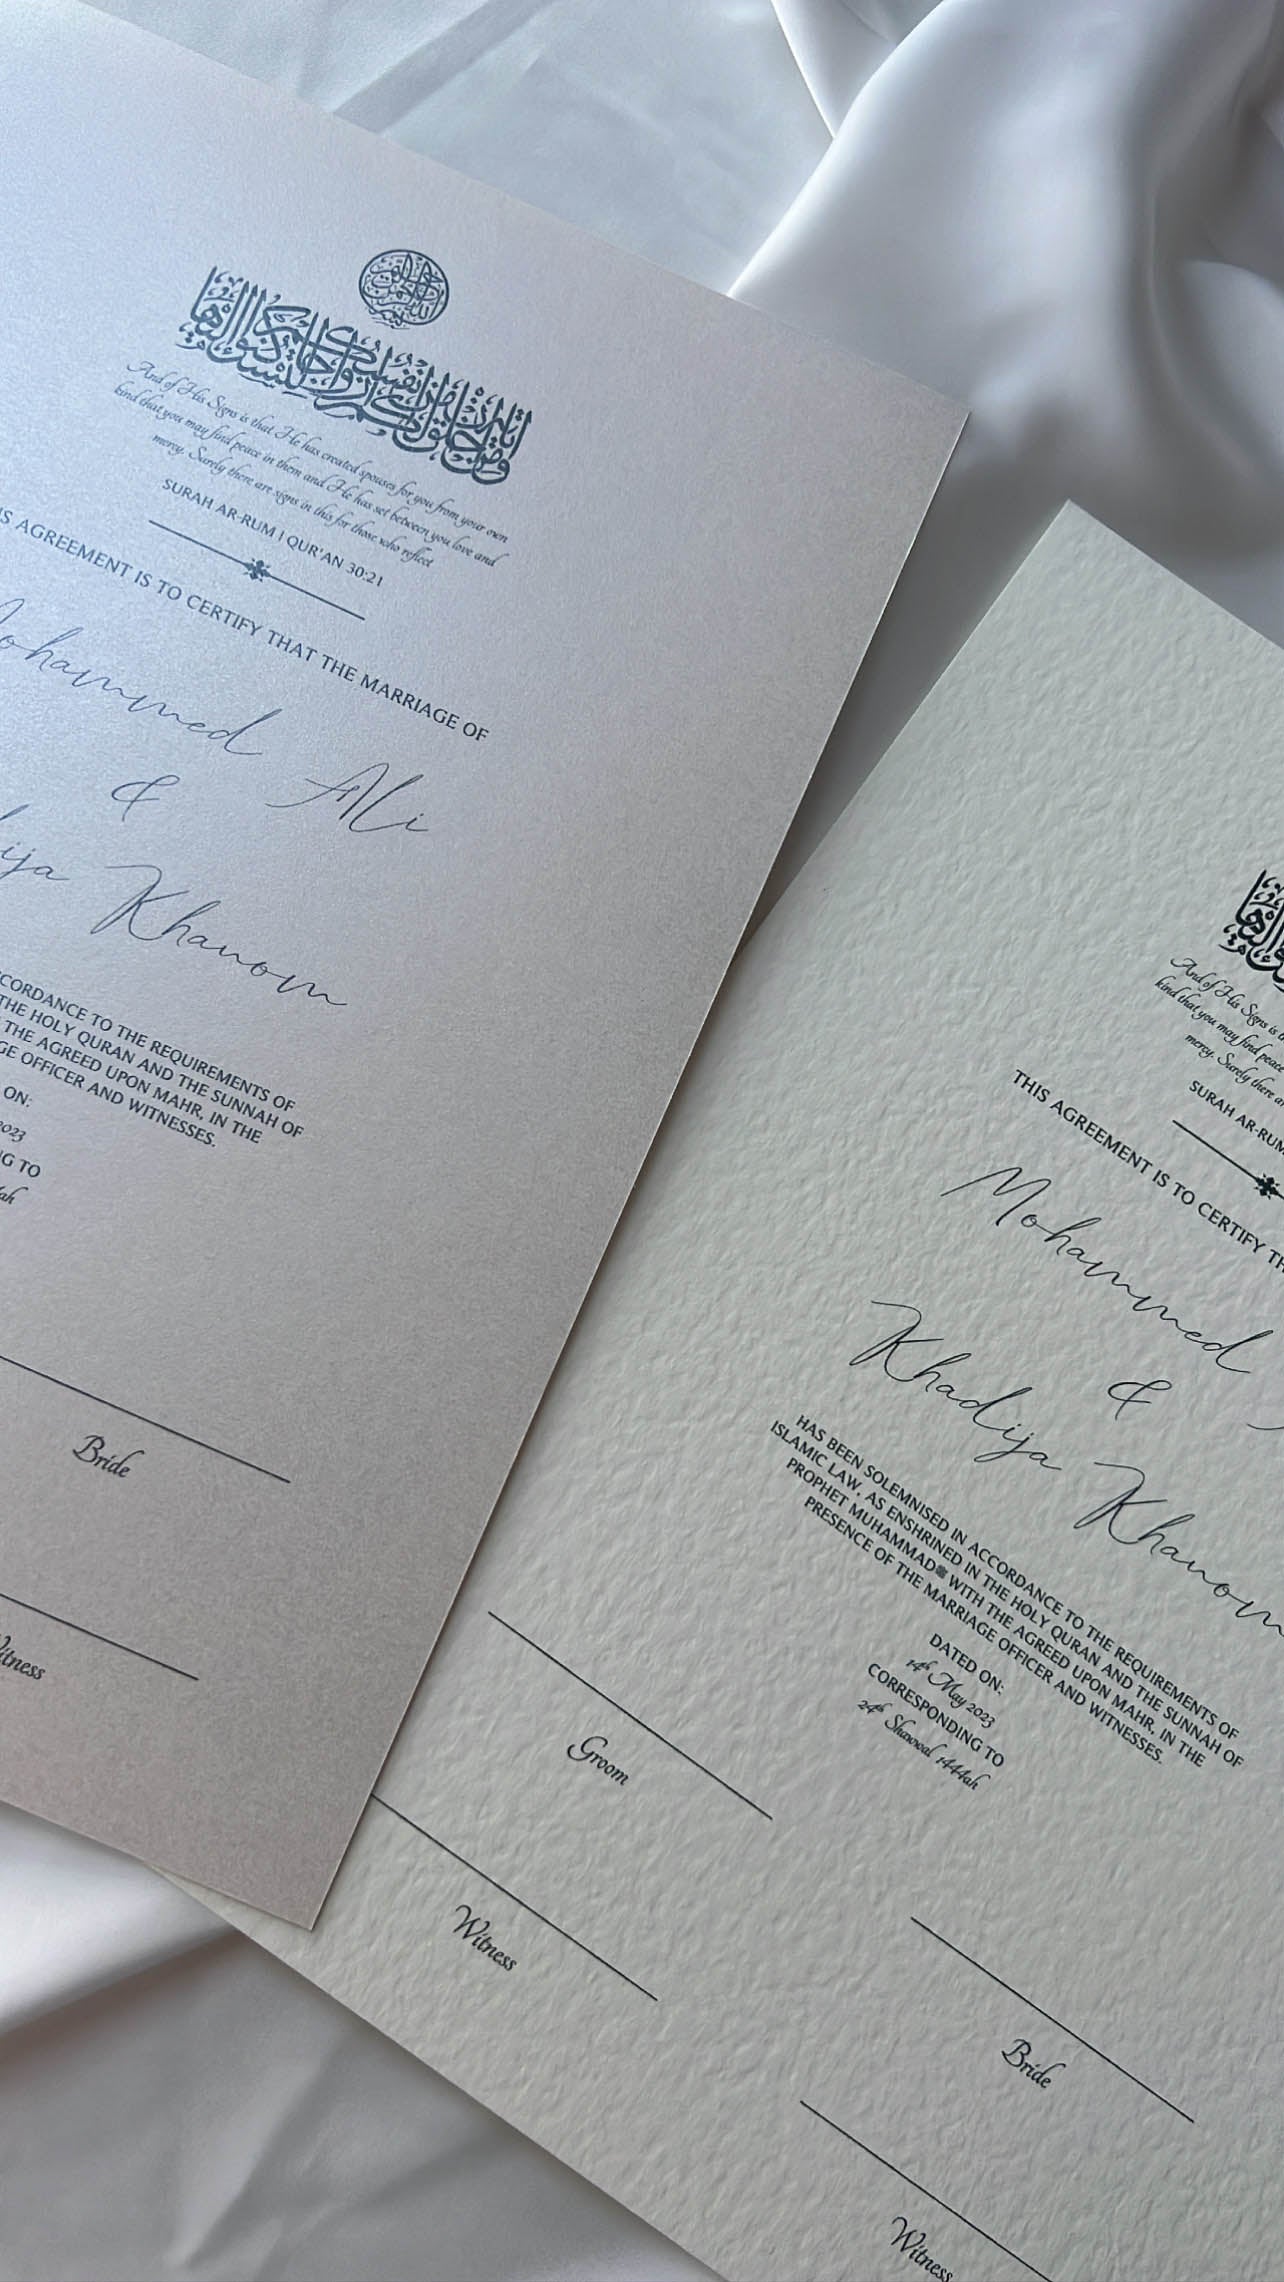 ومن آياته أن خلق لكم من أنفسكم أزواجا لتسكنوا إليها
And of His Signs is that He has created spouses for you from your own
kind that you may find peace in them and He has set between you love and
mercy. Surely there are signs in this for those who reflect
SURAH AR-RUM | QUR'AN 30:21
AGREEMENT IS TO CERTIFY THAT THE MARRIAGE OF
Mohammed Ali
&
Khanom
TO THE REQUIREMENTS OF
THE HOLY QURAN AND THE SUNNAH OF
THE AGREED UPON MAHR, IN THE
OFFICER AND WITNESSES.
ON:
2023
TO
Bride
Witness
And of His Signs is
kind that you may find peace
mercy. Surely there
SURAH AR-RUM
THIS AGREEMENT IS TO CERTIFY
Mohammed
&
Khadija Khanom
HAS BEEN SOLEMNISED IN ACCORDANCE TO THE REQUIREMENTS OF
ISLAMIC LAW, AS ENSHRINED IN THE HOLY QURAN AND THE SUNNAH OF
PROPHET MUHAMMADﷺ WITH THE AGREED UPON MAHR, IN THE
PRESENCE OF THE MARRIAGE OFFICER AND WITNESSES.
DATED ON:
14th May 2023
CORRESPONDING TO
24th Shawwal 1444ah
Groom
Witness
Bride
Witness